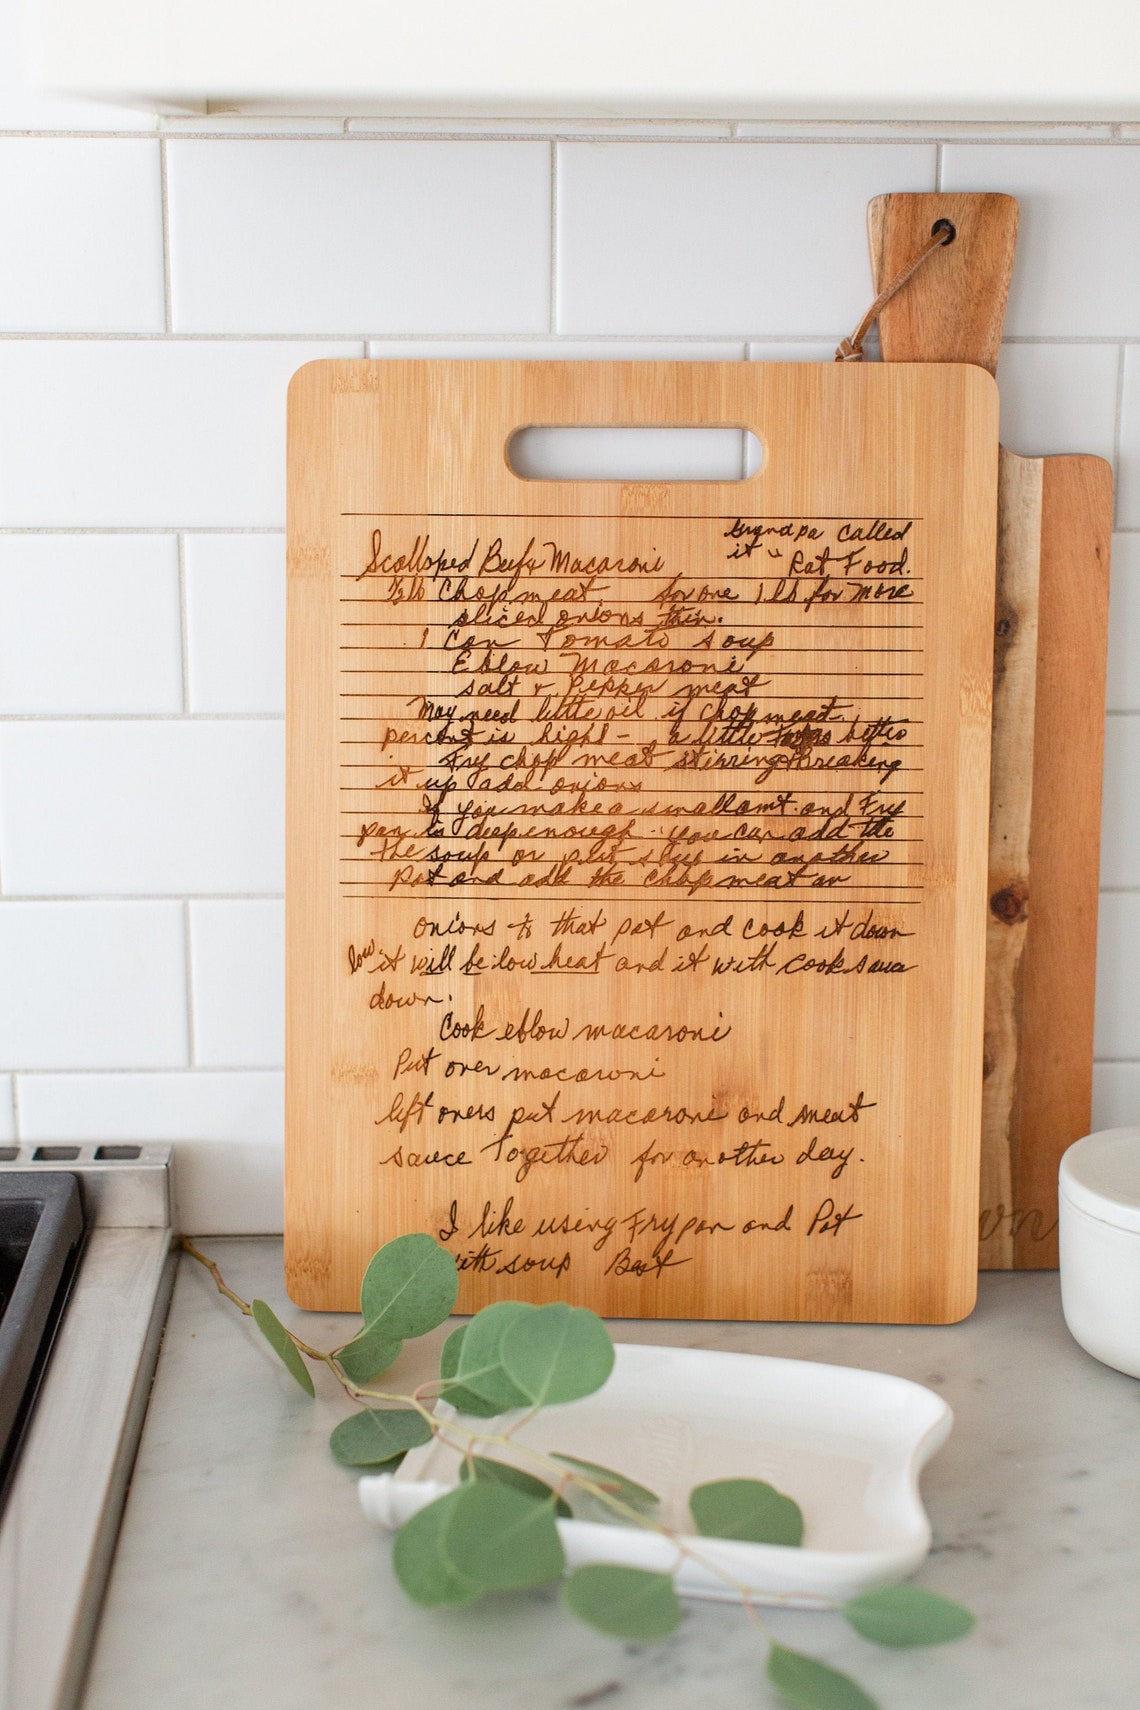 Grandpa called
it " Rat Food.
Scalloped Beef & Macaroni
½ lb Chop meat for one 1 lb for more
sliced onions thin.
1 Can Tomato soup
Eblow Macaroni
salt & Pepper meat
May need little oil if chop meat
percent is high - a little better
Fry chop meat stirring & Breaking
it up add onions
If you make a small amt. and Fry
pan is deep enough you can add the
the soup or put soup in another
Pot and add the chop meat an
onions to that pot and cook it down
low
it will be low heat and it with cook sauce
down.
Cook eblow macaroni
Put over macaroni
left overs put macaroni and meat
sauce Together for another day.
I like using Frypan and Pot
with soup Best